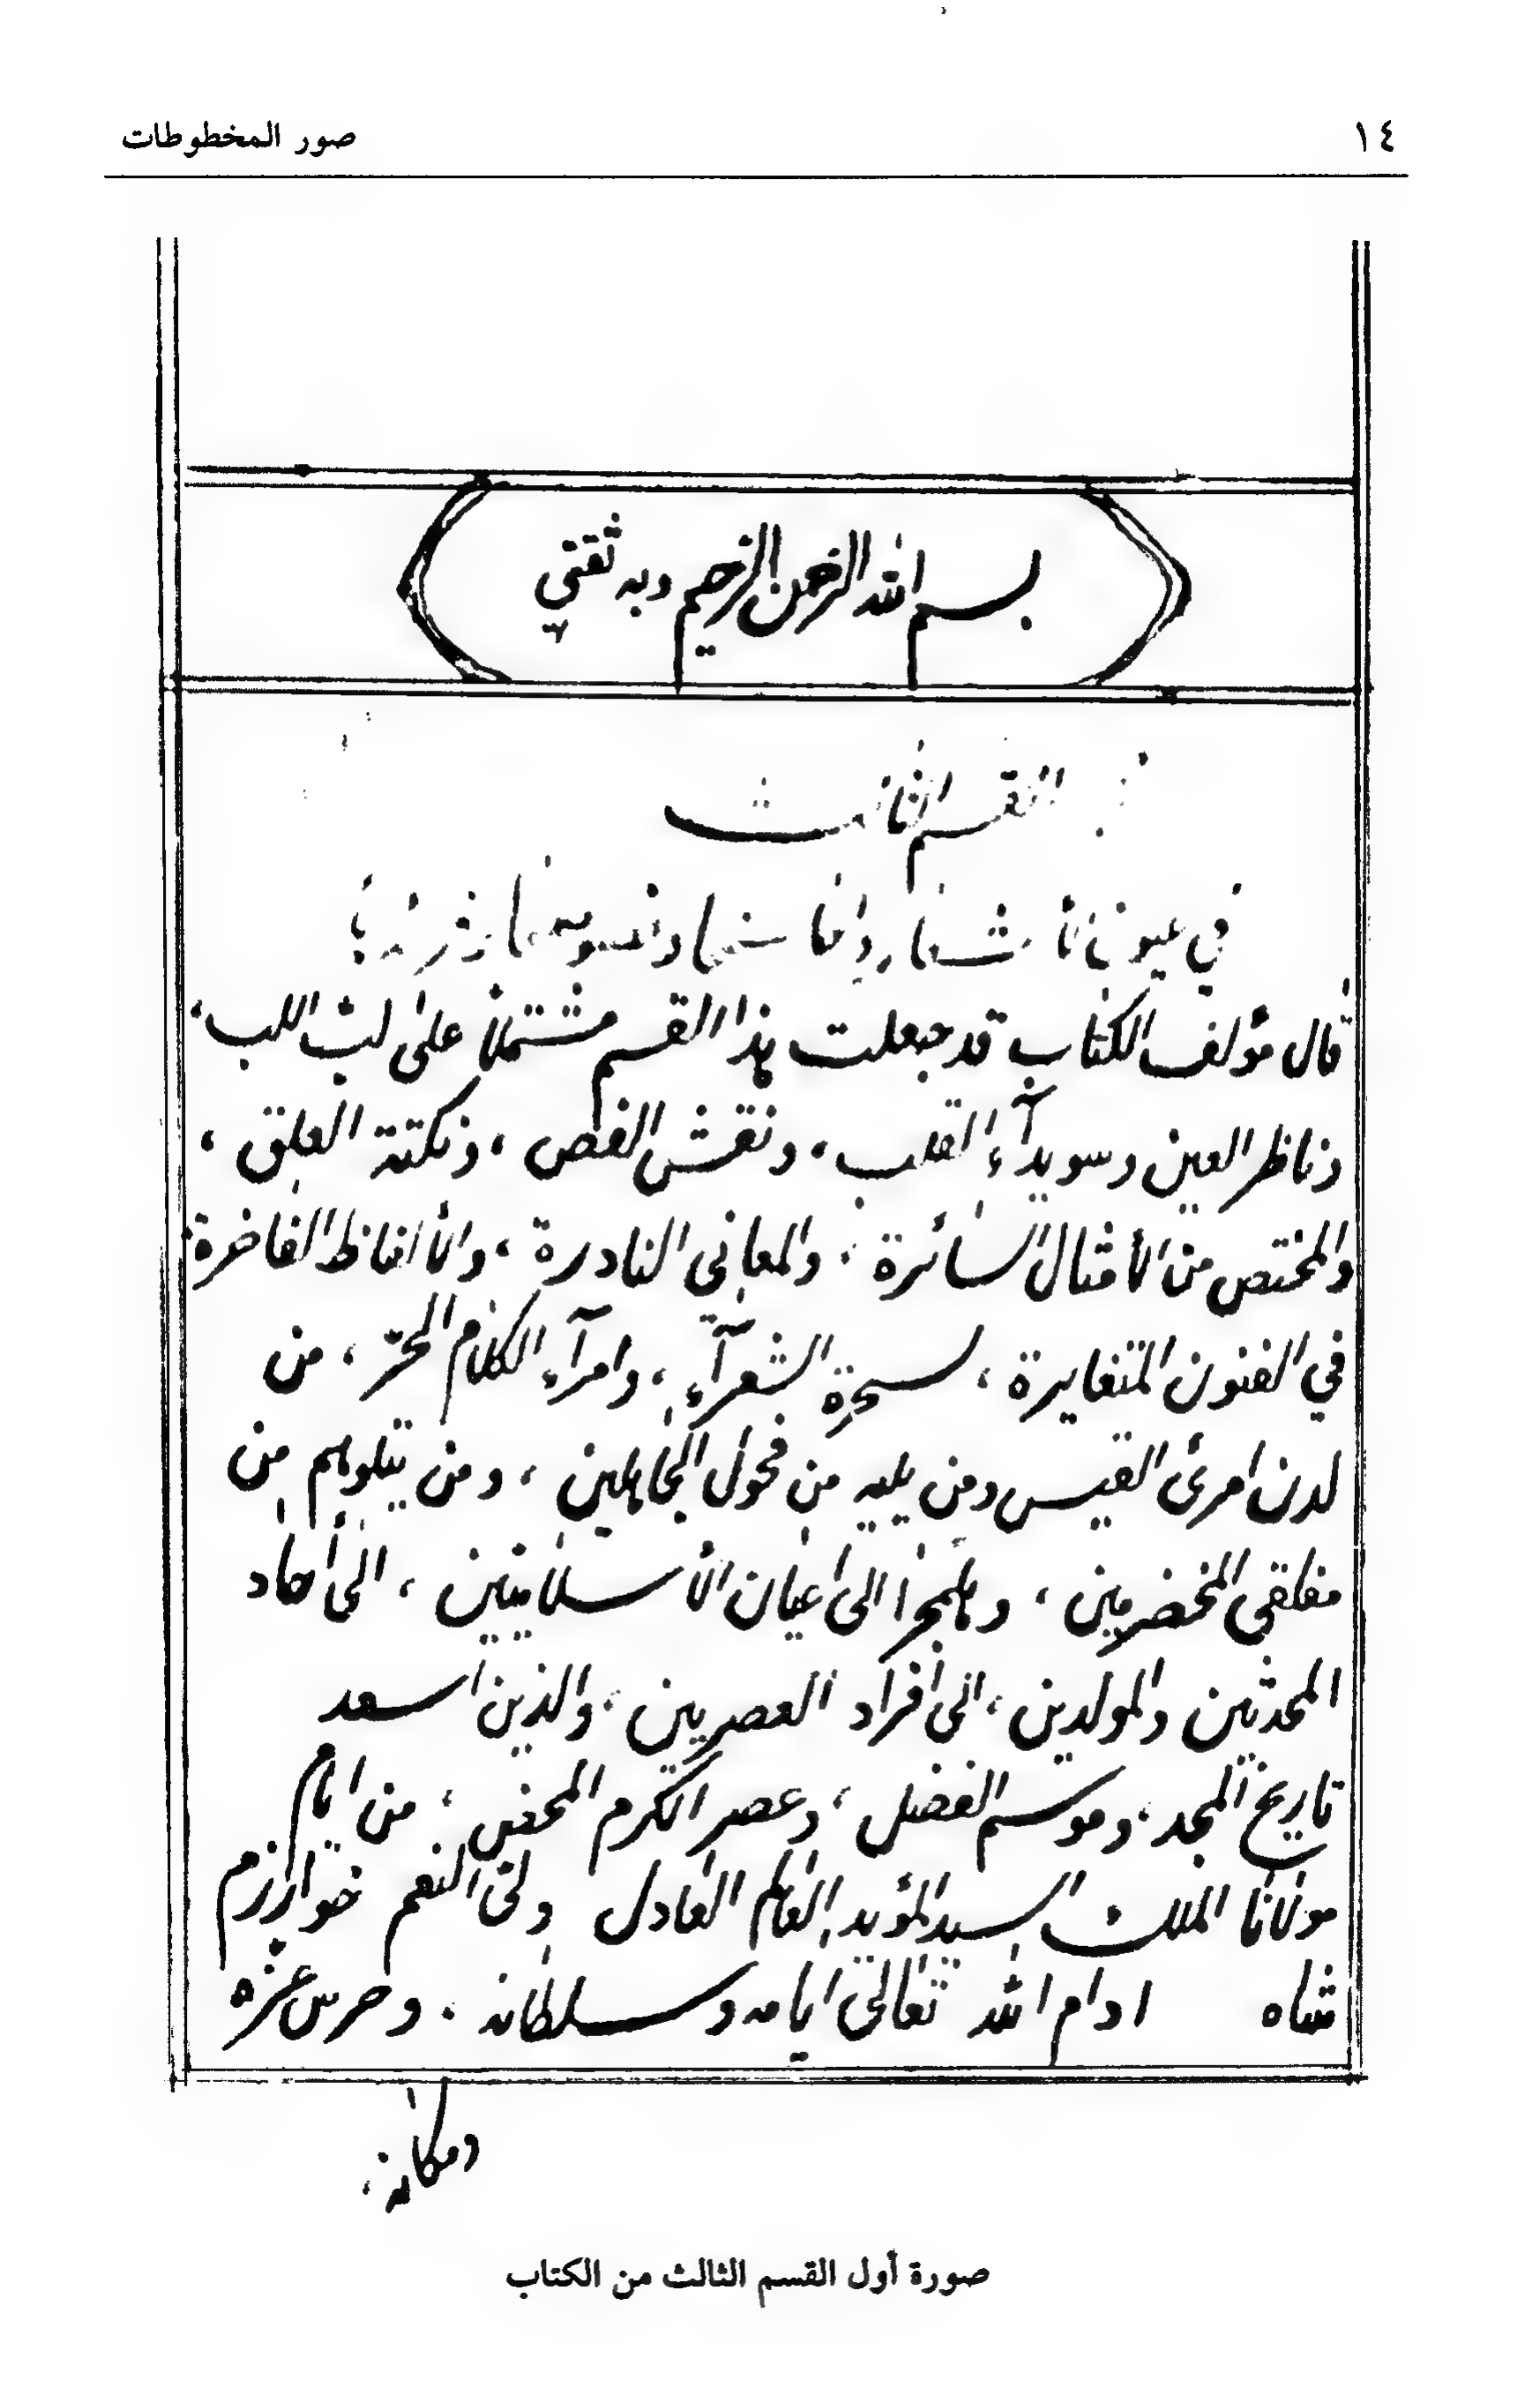 ١٤
صور المخطوطات
بسم الله الرحمن الرحيم وبه ثقتي
القسم الثالث
في عيون الأشعار وأحاسنها وفصوصها
قال مؤلف الكتاب قد جعلت هذا القسم مشتملاً على لبّ اللب،
وناظر العين وسويدآء القلب، ونقش الفص، ونكتة العلق،
والمختص من الأمثال السائرة، والمعاني النادرة، والألفاظ الفاخرة،
في الفنون المتغايرة، لسحرة الشعرآء، وامرآء الكلام الحرّ، من
لدن امرئ القيس ومن يليه من فحول الجاهلين، ومن يتلوهم من
مفلقي المخضرمين، وهلمجرا الى اعيان الأسلاميين، الى أحاد
المحدثين والمولدين، الى افراد العصريين، والذين اسعد
تاريخ المجد، وموسم الفضل، وعصر الكرم المحض، من ايام
مولانا الملك السيد المؤيد العالم العادل ولى النعم خوارزم
شاه ادام الله تعالى ايامه وسلطانه. وحرس عزّه
ومكانه،
صورة أول القسم الثالث من الكتاب